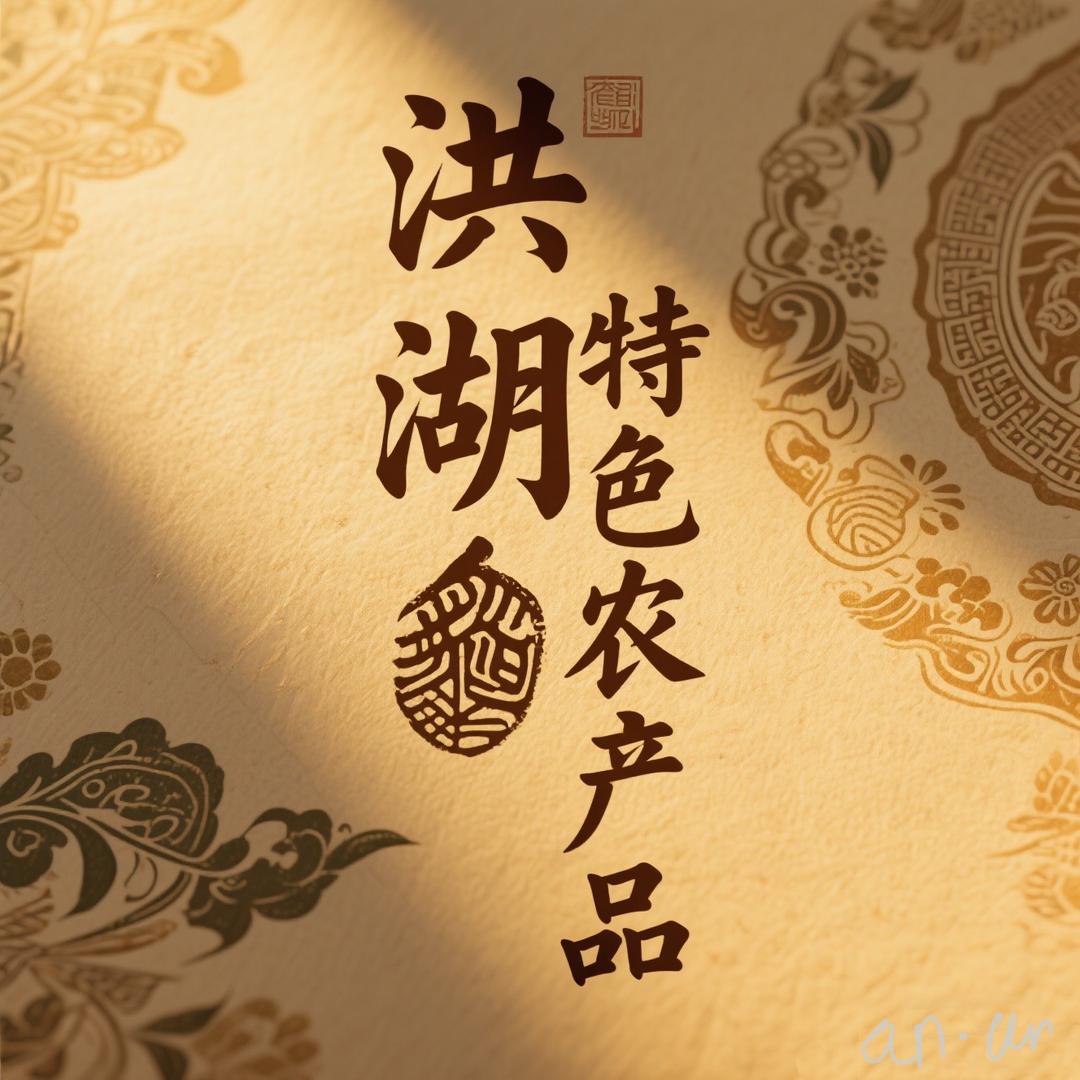 洪湖
特色农产品
an·ar